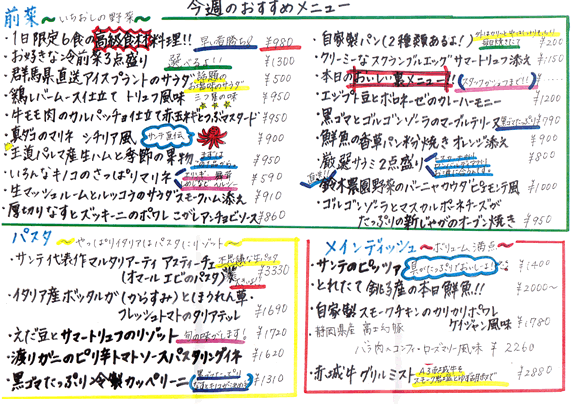 今週のおすすめメニュー
前菜 〜いちおしの野菜〜
・1日限定6食の高級食材料理!! 早い者勝ち!! ¥880
・お好きな冷前菜3点盛り 選べるよ!! ¥1300
・群馬県直送アイスプラントのサラダ 話題のお塩味のサラダ ¥500
・鶏レバームース仕立て トリュフ風味 三ツ星の味 ¥950
・牛モモ肉のカルパッチョ仕立て赤玉ネギとつぶマスタード ¥950
・真ダコのマリネ シチリア風 サンテ直伝 ¥900
・王道パルマ産生ハムと季節の果物 ¥950
・いろんなキノコのさっぱりマリネ ¥590
・生マッシュルームとルッコラのサラダ スモークハム添え ¥910
・厚切りなすとズッキーニのポワレ こがしアンチョビソース ¥860
・自家製パン(2種類あるよ!) 毎日焼きたて ¥200
・クリーミーなスクランブルエッグ サマートリュフ添え ¥1150
・本日のおいしい裏メニュー!! (スタッフがコッソまで!!) ¥
・エジプト豆とボロネーゼのカレーハーモニー ¥1200
・黒ゴマとゴルゴンゾーラのマーブルテリーヌ ¥790
・鮮魚の香草パン粉焼き オレンジ添え ¥900
・厳選サラミ2点盛り ¥800
・鈴木農園野菜のバーニャカウダ ¥1000
・ゴルゴンゾーラとマスカルポーネチーズが
たっぷりの新じゃがのオーブン焼き ¥950
パスタ 〜やっぱりイタリアはパスタにリゾット〜
・サンテ代表作マルタリアーティ アスティーチェ 不思議な生パスタ
(オマールエビのパスタ) ¥3330
・イタリア産ボッタルガ(からすみ)とほうれん草・
フレッシュトマトのタリアテッレ ¥1690
・えだ豆とサマートリュフのリゾット 旬の味がします! ¥1720
・渡りガニのピリ辛トマトソースパスタリングイネ ¥1620
・黒ゴマたっぷり冷製カッペリーニ ¥1310
メインディッシュ 〜ボリューム満点〜
・サンテのピッツァ 具がたっぷりでおいしいよ! ¥1400
・とれたて 銚子産の本日鮮魚!! ¥2000〜
・自家製スモークチキンのカリカリポワレ
ケイジャン風味 ¥1780
静岡県産 富士幻豚
バラ肉のコンフィ・ローズマリー風味 ¥2260
・赤城牛グリルミスト ¥2880